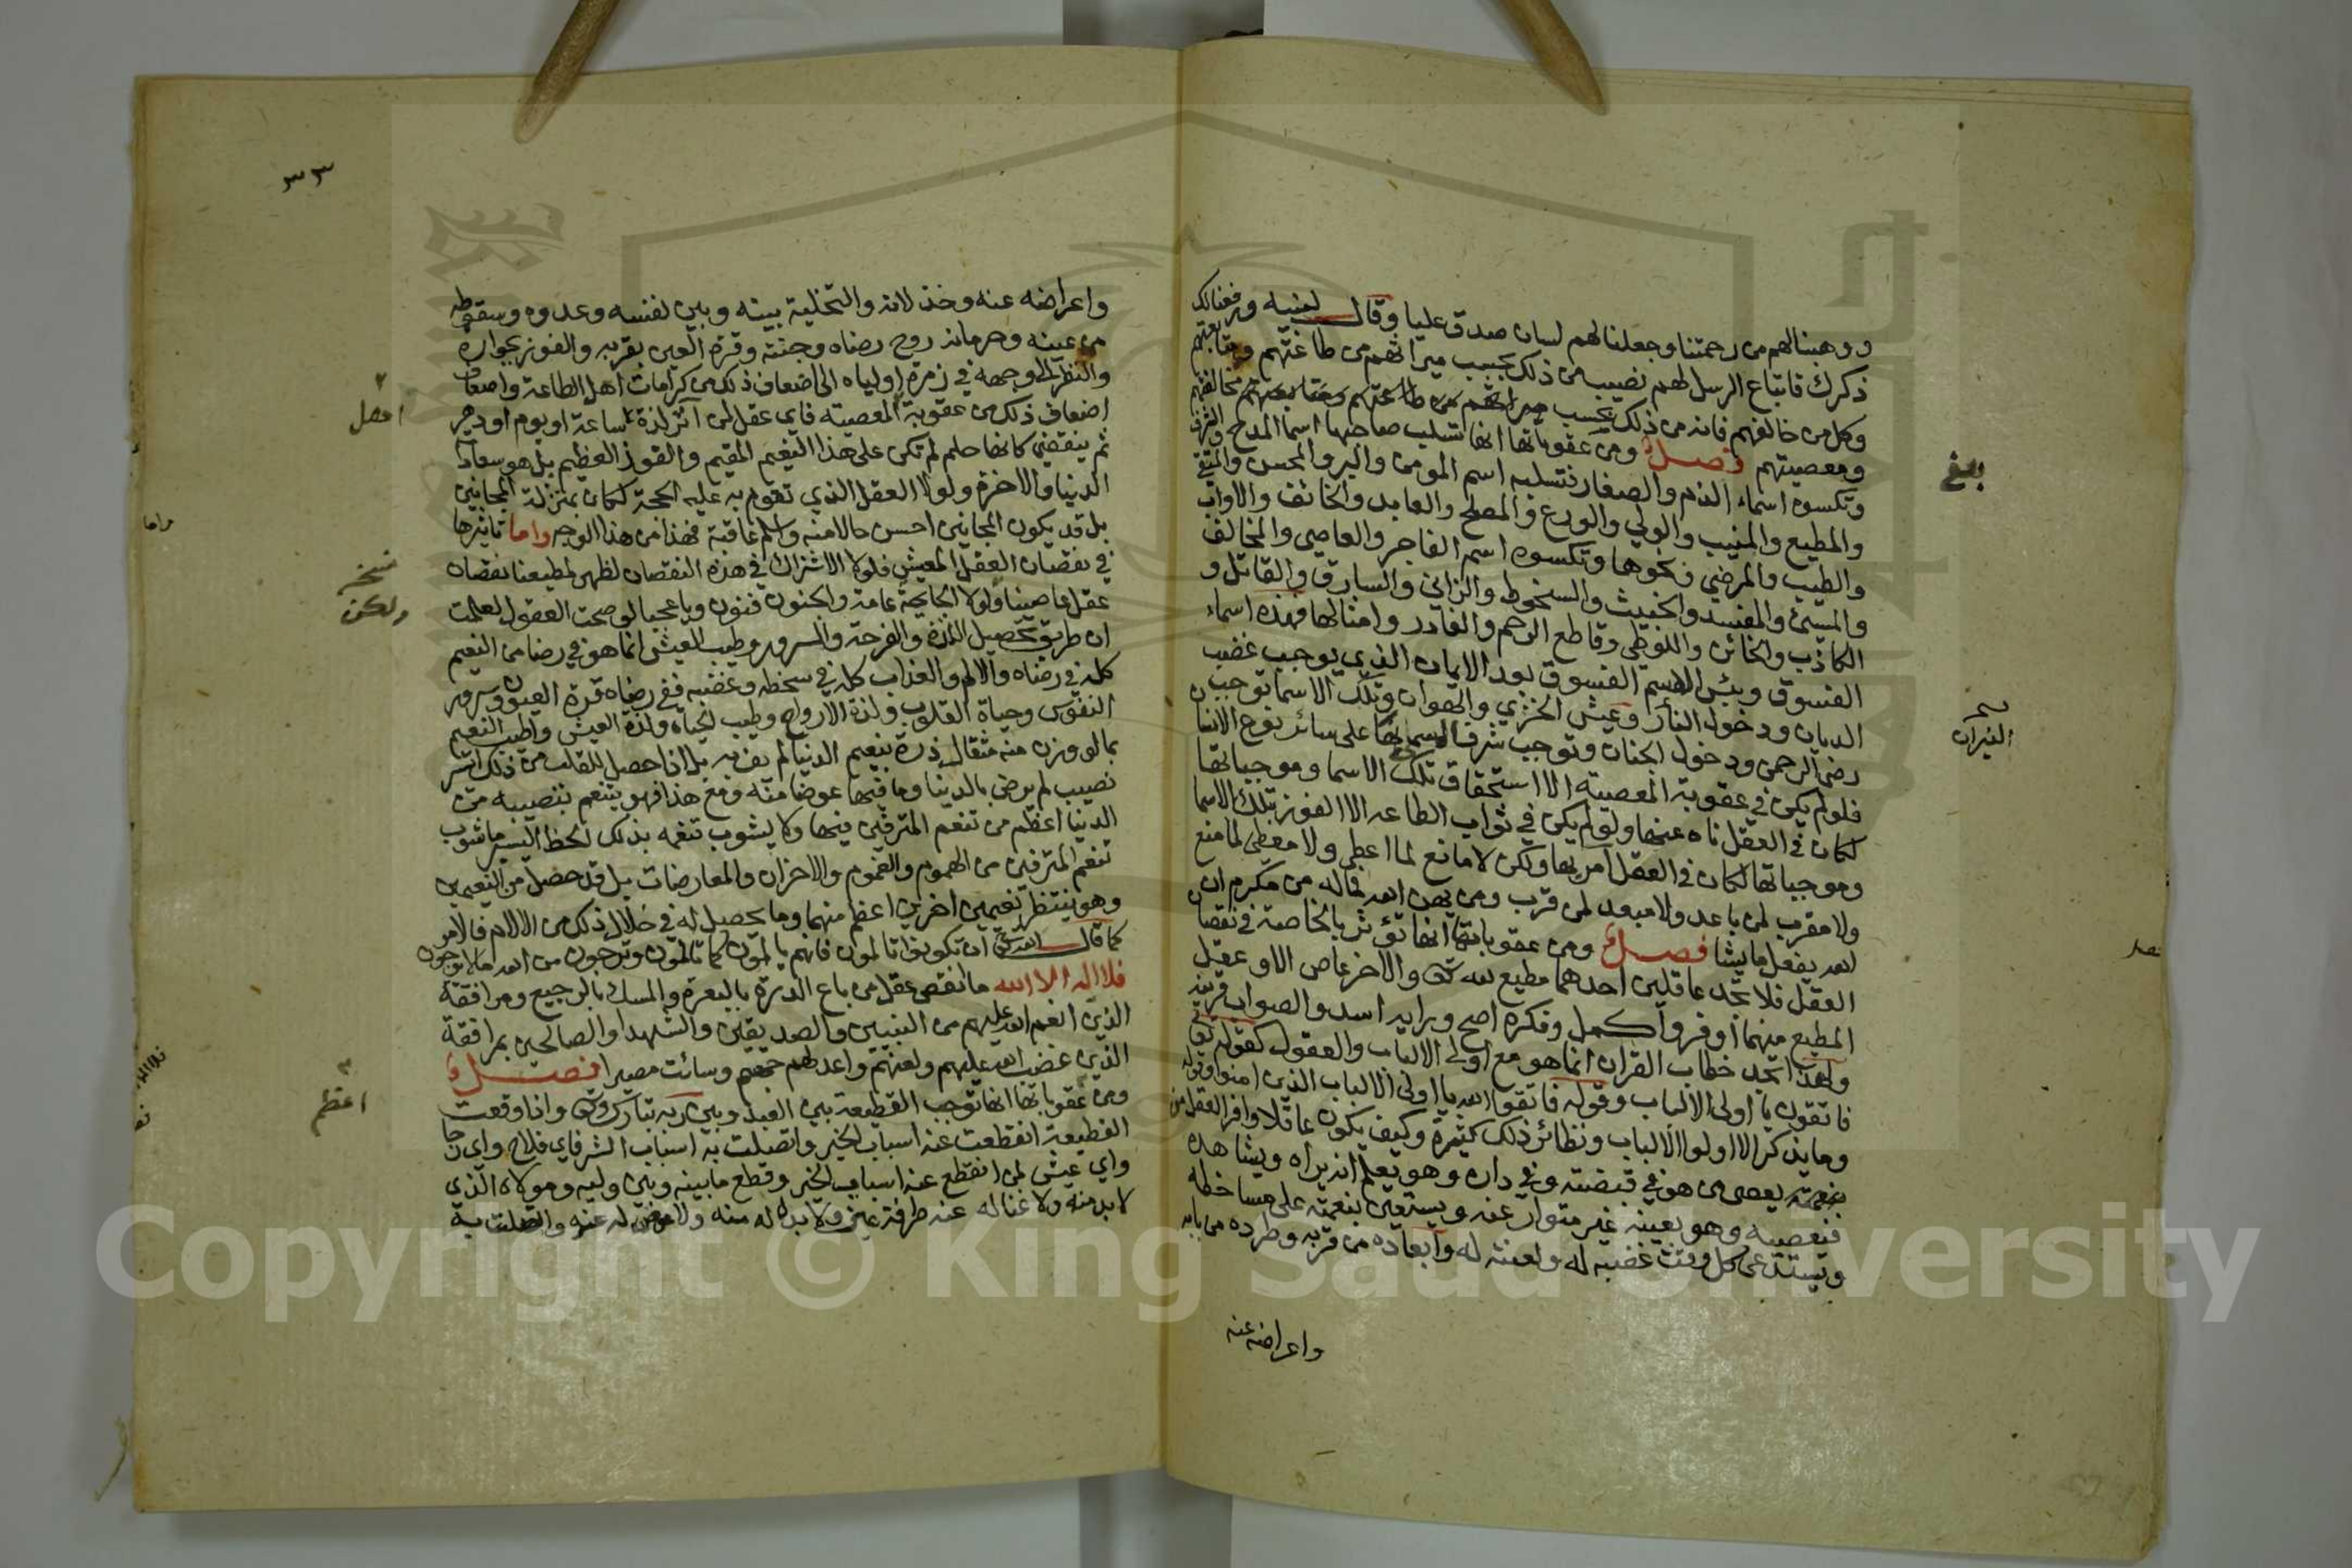 ووهبنالهم من رحمتنا وجعلنا لهم لسان صدق عليا وقال لنبيه ورفعنا لك
ذكرك فاتباع الرسل لهم نصيب من ذلك بحسب ميراثهم من طاعتهم ومتابعتهم
وكل من خالفهم فانه من ذلك بحسب مخالفتهم
ومعصيتهم فصل ومن عقوباتها انها تسلب صاحبها اسما المدح والشرف
وتكسوه اسماء الذم والصغار فتسلبه اسم المومن والبر والمحسن والمتقي
والمطيع والمنيب والولي والورع والمصلح والعابد والخائف والاواب
والطيب والمرضي ونحوها وتكسوه اسم الفاجر والعاصي والمخالف
والمسيئ والمفسد والخبيث والسخوط والزاني والسارق والقاتل و
الكاذب والخائن واللوطي وقاطع الرحم والغادر وامثالها فهذه اسماء
الفسوق وبئس الاسم الفسوق بعد الايمان الذي يوجب غضب
الديان ودخول النار وعيش الخزي والهوان وتلك الاسما توجب
رضى الرحمن ودخول الجنان وتوجب شرف المسما بها على سائر نوع الانسان
فلو لم يكن في عقوبة المعصية الا استحقاق تلك الاسما وموجباتها
لكان في العقل ناه عنها ولو لم يكن في ثواب الطاعه الا الفوز بتلك الاسما
وموجباتها لكان في العقل آمر بها ولكن لا مانع لما اعطى ولا معطى لما منع
ولا مقرب لمن باعد ولا مبعد لمن قرب ومن يهن الله فما له من مكرم ان
الله يفعل ما يشا فصل ومن عقوباتها انها تؤثر بالخاصة في نقصان
العقل فلا تجد عاقلين احدهما مطيع لله والاخر عاص الا وعقل
المطيع منهما اوفر واكمل وفكره اصح ورايه اسد والصواب قرينه
ولهذا تجد خطاب القران انما هو مع اولى الالباب والعقول كقوله
فاتقون يا اولى الالباب وقوله فاتقوا الله يا اولى الالباب الذين امنوا وقوله
وما يذكر الا اولوا الالباب ونظائر ذلك كثيرة وكيف يكون عاقلا وافر العقل من
يعصى من هو في قبضته وفي داره وهو يعلم انه يراه ويشاهده
فيعصيه وهو بعينه غير متوار عنه ويستعين بنعمته على مساخطه
ويستدعي كل وقت غضبه له ولعنته له وابعاده من قربه وطرده من بابه
واعراضه عنه
بلغ
النيران
٣٣
واعراضه عنه وخذلانه والتخلية بينه وبين نفسه وعدوه وسقوطه
من عينه وحرمانه روح رضاه وجنته وقرة العين بقربه والفوز بجواره
والنظر الى وجهه في زمرة اولياه الى اضعاف ذلك من كرامات اهل الطاعة واضعاف
اضعاف ذلك من عقوبة المعصيه فاي عقل لمن آثر لذة ساعة او يوم او دهر
ثم ينقضي كانها حلم لم تكن على هذا النعيم المقيم والفوز العظيم بل هو سعادة
الدنيا والاخرة ولولا العقل الذي تقوم به عليه الحجة لكان بمنزلة المجانين
بل قد يكون المجانين احسن حالا منه واسلم عاقبة فهذا من هذا الوجه واما تاثيرها
في نقصان العقل المعيشي فلولا الاشتراك في هذه النقصان لظهر لمطيعنا نقصان
عقل عاصينا ولولا الجايحة عامة والجنون فنون وياعجبا لو صحت العقول لعلمت
ان طريق تحصيل اللذة والفرحة والسرور وطيب العيش انما هو في رضا من النعيم
كله في رضاه والالم والعذاب كله في سخطه وغضبه ففي رضاه قرة العيون وسرور
النفوس وحياة القلوب ولذة الارواح وطيب الحياه ولذة العيش واطيب النعيم
مما لو وزن منه مثقال ذرة بنعيم الدنيا لم يف به بل اذا حصل للقلب من ذلك ايسر
نصيب لم يرض بالدنيا وما فيها عوضا منه ومع هذا فهو يتنعم بنصيبه من
الدنيا اعظم من تنعم المترفين فيها ولا يشوب تنعمه بذلك الحظ اليسير ما يشوب
تنعم المترفين من الهموم والغموم والاحزان والمعارضات بل قد حصل من النعيمين
وهو ينتظر نعيمين اخرين اعظم منهما وما يحصل له في خلال ذلك من الالام فالامر
كما قال الله ان تكونوا تالمون فانهم يالمون كما تالمون وترجون من الله ما لا يرجون
فلا اله الا الله ما انقص عقل من باع الدرة بالبعرة والمسك بالرجيع ومرافقة
الذين انعم الله عليهم من النبيين والصديقين والشهدا والصالحين بمرافقة
الذين غضب الله عليهم ولعنهم واعد لهم جهنم وسائت مصيرا فصل
ومن عقوباتها انها توجب القطيعة بين العبد وبين ربه تبارك وتعالى واذا وقعت
القطيعة انقطعت عنه اسباب الخير واتصلت به اسباب الشر فاي فلاح واي رجا
واي عيش لمن انقطع عنه اسباب الخير وقطع ما بينه وبين وليه ومولاه الذي
لا بد منه ولا غنا له عنه طرفة عين ولا بدل له منه ولا عوض له عنه واتصلت به
نسخه
ولكن
اعظم